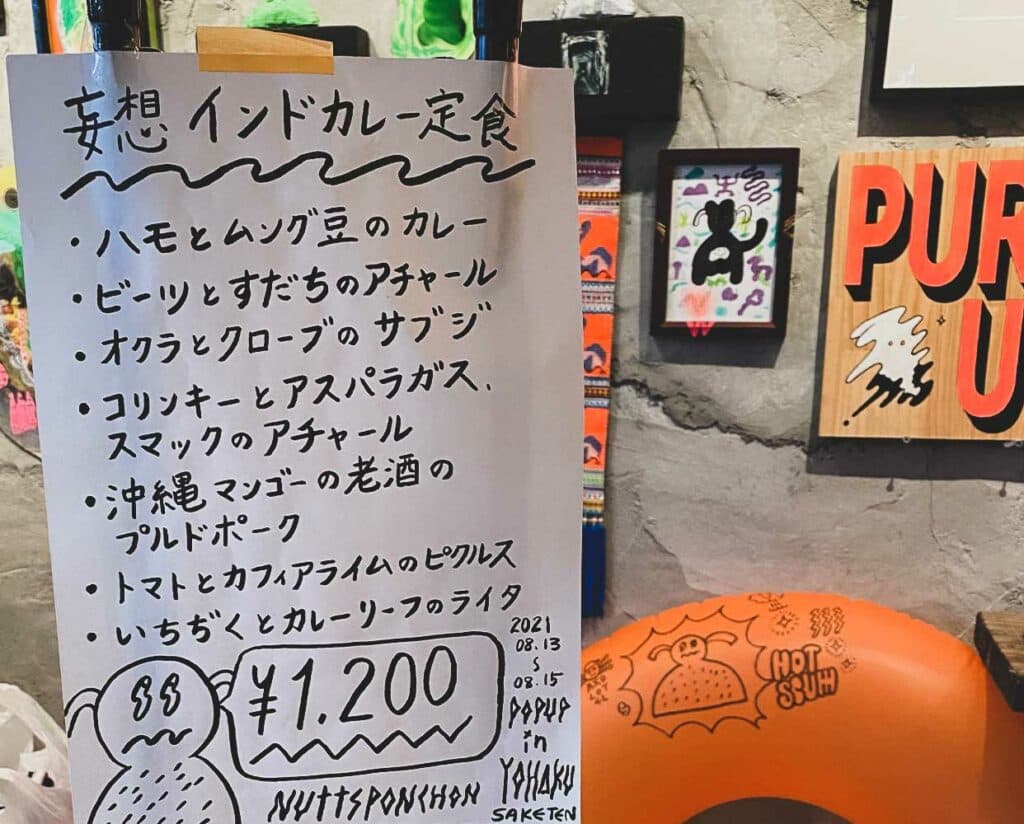 妄想 インドカレー定食
・ハモとムング豆のカレー
・ビーツとすだちのアチャール
・オクラとクローブのサブジ
・コリンキーとアスパラガス、
スマックのアチャール
・沖縄マンゴーの老酒の
プルドポーク
・トマトとカフィアライムのピクルス
・いちぢくとカレーリーフのライタ
¥1.200
2021
08.13
~
08.15
POPUP
in
YOHAKU
SAKETEN
NUTTSPONCHON
PUR
U
HOT
SSUM